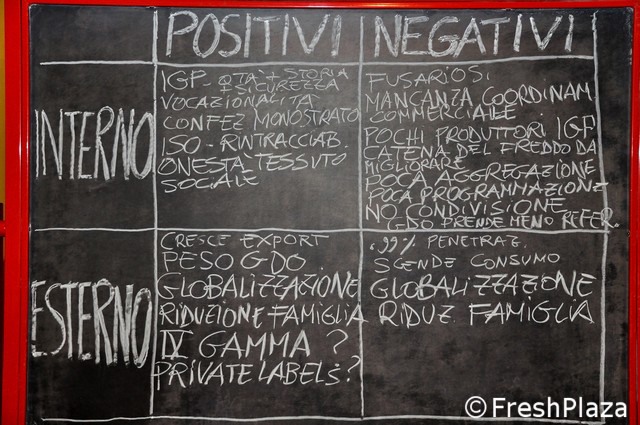 POSITIVI NEGATIVI
INTERNO
IGP - QTÀ + STORIA
+ SICUREZZA
VOCAZIONALITÀ
CONFEZ MONOSTRATO
ISO - RINTRACCIAB.
ONESTÀ TESSUTO
SOCIALE
FUSARIOSI
MANCANZA COORDINAM
COMMERCIALE
POCHI PRODUTTORI IGP
CATENA DEL FREDDO DA
MIGLIORARE
POCA AGGREGAZIONE
POCA PROGRAMMAZIONE
NO CONDIVISIONE
GDO PRENDE MENO REFER.
ESTERNO
CRESCE EXPORT
PESO GDO
GLOBALIZZAZIONE
RIDUZIONE FAMIGLIA
IV GAMMA ?
PRIVATE LABELS?
99% PENETRAZ.
SCENDE CONSUMO
GLOBALIZZAZIONE
RIDUZ. FAMIGLIA
©FreshPlaza